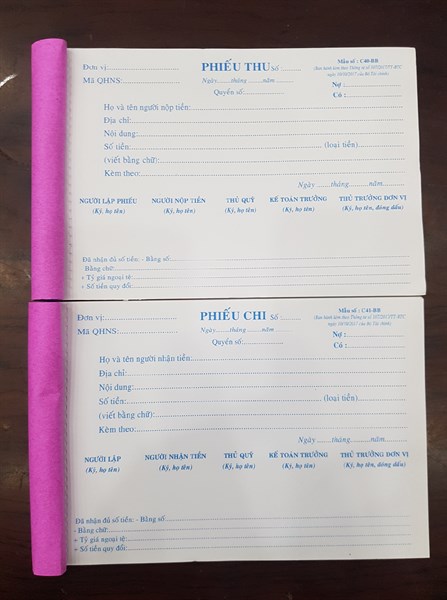 Đơn vị:
PHIẾU THU Số :
Mẫu số : C40-BB
Mã QHNS:
Ngày tháng năm
(Ban hành kèm theo Thông tư số 107/2017/TT-BTC
ngày 10/10/2017 của Bộ Tài chính)
Quyển số:
Nợ :
Có :
Họ và tên người nộp tiền:
Địa chỉ:
Nội dung:
Số tiền: (loại tiền)
(viết bằng chữ):
Kèm theo:
Ngày tháng năm
NGƯỜI LẬP PHIẾU NGƯỜI NỘP TIỀN THỦ QUỸ KẾ TOÁN TRƯỞNG THỦ TRƯỞNG ĐƠN VỊ
(Ký, họ tên) (Ký, họ tên) (Ký, họ tên) (Ký, họ tên) (Ký, họ tên, đóng dấu)
Đã nhận đủ số tiền: - Bằng số
Bằng chữ:
+ Tỷ giá ngoại tệ:
+ Số tiền quy đổi:
Đơn vị:
PHIẾU CHI Số :
Mẫu số : C41-BB
Mã QHNS:
Ngày tháng năm
(Ban hành kèm theo Thông tư số 107/2017/TT-BTC
ngày 10/10/2017 của Bộ Tài chính)
Quyển số:
Nợ :
Có :
Họ và tên người nhận tiền:
Địa chỉ:
Nội dung:
Số tiền: (loại tiền)
(viết bằng chữ):
Kèm theo:
Ngày tháng năm
NGƯỜI LẬP NGƯỜI NHẬN TIỀN THỦ QUỸ KẾ TOÁN TRƯỞNG THỦ TRƯỞNG ĐƠN VỊ
(Ký, họ tên) (Ký, họ tên) (Ký, họ tên) (Ký, họ tên) (Ký, họ tên, đóng dấu)
Đã nhận đủ số tiền: - Bằng số
- Bằng chữ:
+ Tỷ giá ngoại tệ:
+ Số tiền quy đổi: